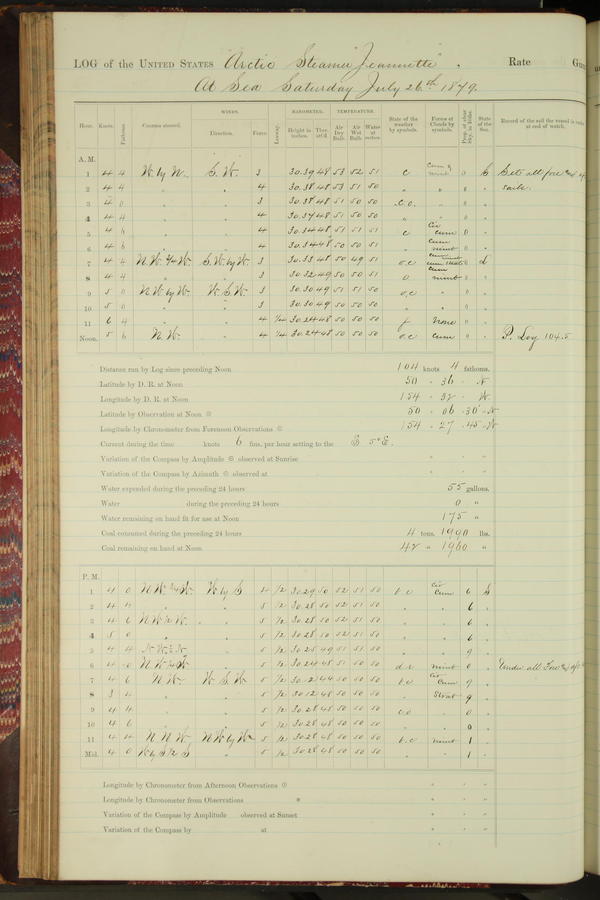 LOG of the UNITED STATES Arctic Steamer "Jeannette". Rate Gu
At Sea Saturday July 26th 1879.
WINDS. BAROMETER. TEMPERATURE.
Hour. Knots. Fathoms. Courses steered. Direction. Force. Leeway. Height in inches. Ther. att'd. Air Dry Bulb. Air Wet Bulb. Water at surface. State of the weather by symbols. Forms of Clouds by symbols. Prop. of clear Sky, in 10ths. State of the Sea. Record of the sail the vessel is under at end of watch.
A. M.
1 4 4 W. by N. S. W. 3 30.39 48 53 52 51 c 0 S Sets all fore
2 4 4 " " 4 30.38 48 53 51 50 " " " sails.
3 4 0 " " 3 30.38 48 51 50 50 " "
4 4 4 " " 4 30.37 48 51 50 50 " " 0 "
5 4 6 " " 4 30.34 48 51 51 51 c Cir Cum 0 "
6 4 6 " " 4 30.34 48 50 51 Cum nimb 0 "
7 4 4 S. W. by W. 3 30.33 48 50 49 51 o.c. 0
8 4 4 " " 3 30.32 49 50 50 51 Cum nimb 0 "
9 5 0 N. W. by W. W. S. W. 3 30.30 49 51 51 50 o.c. " 0 "
10 5 0 " " 3 30.30 49 50 50 50 " " 0 "
11 6 4 " " 4 1/4 30.24 48 50 50 50 None 0 "
Noon. 5 6 N. W. " 4 1/4 30.24 48 50 50 50 o.c Cum 0 " P. Log 104.5
Distance run by Log since preceding Noon 104 knots 4 fathoms.
Latitude by D. R. at Noon 50 ° 36 ' N
Longitude by D. R. at Noon 154 ° 32 ' W.
Latitude by Observation at Noon 50 ° 06 ' 30 " N
Longitude by Chronometer from Forenoon Observations 154 ° 27 ' 45 " W
Current during the time knots 6 fms. per hour setting to the S 5° E.
Variation of the Compass by Amplitude observed at Sunrise ° ' "
Variation of the Compass by Azimuth observed at ° ' "
Water expended during the preceding 24 hours 55 gallons.
Water during the preceding 24 hours 0 "
Water remaining on hand fit for use at Noon 175 "
Coal consumed during the preceding 24 hours 4 tons. 1990 lbs.
Coal remaining on hand at Noon 42 " 1960 "
P. M.
1 4 0 W by S 4 1/2 30.29 50 52 51 50 b.c Cir Cum 6 S
2 4 4 " " 5 1/2 30.28 50 52 51 50 " " 6 "
3 4 6 " 5 1/2 30.28 50 52 51 50 " " 6 "
4 5 0 " " 5 1/2 30.28 50 52 51 50 " " 6 "
5 4 4 " 5 1/2 30.25 49 51 51 50 " " 9 "
6 4 0 " 5 1/2 30.24 48 51 50 50 nimb 0 " Under all Fore
7 4 6 N W. W. S. W. 5 1/2 50 50 50 b.c Cir Cum 9 "
8 3 4 " " 5 1/2 30.12 48 50 50 50 " Strat 9 "
9 4 4 " " 5 1/2 30.28 48 50 50 50 " 0 "
10 4 6 " " 5 1/2 30.28 48 50 50 50 " " 0 "
11 4 4 N. N. W. N. W. by W. 5 1/2 30.28 48 50 50 50 b.c nimb 1 "
Mid. 4 0 " 5 1/2 30.28 48 50 50 50 " " 1 "
Longitude by Chronometer from Afternoon Observations ° ' "
Longitude by Chronometer from Observations * ° ' "
Variation of the Compass by Amplitude observed at Sunset ° ' "
Variation of the Compass by at ° ' "